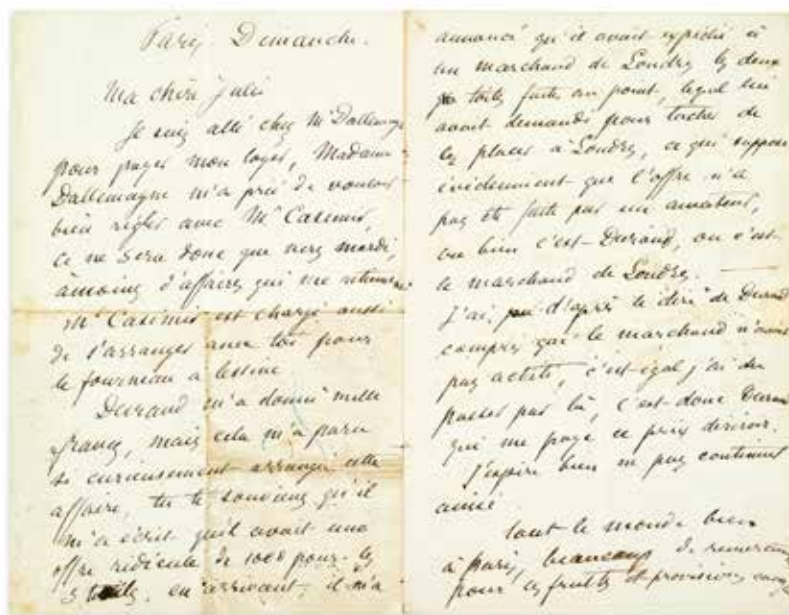 Paris Dimanche.
Ma chère Julie
Je suis allé chez Mr Dallemagne
pour payer mon loyer, Madame
Dallemagne m'a prié de vouloir
bien régler avec Mr Casimir,
ce ne sera donc que vers mardi,
à moins d'affaires qui me retienne
Mr Casimir est chargé aussi
de s'arranger avec toi pour
le fourneau a lessive
Durand m'a donné mille
francs, mais cela m'a paru
si curieusement arrangé cette
affaire, tu te souviens qu'il
m'a écrit qu'il avait une
offre ridicule de 1000 pour les
toiles. en arrivant, il m'a
annoncé qu'il avait expédié à
un marchand de Londres les deux
toiles faites au point, lequel lui
avait demandé pour tacher de
les placer à Londres, ce qui suppose
évidemment que l'offre n'a
pas été faite par un amateur,
ou bien c'est Durand, ou c'est
le marchand de Londres.
J'ai d'après le dire de Durand
compris que le marchand n'avait
pas acheté, c'est égal j'ai du
passer par là, c'est donc Durand
qui me paye ce prix dérisoir.
J'espère bien ne pas continuer
ainsi
tout le monde bien
à Paris, beaucoup de remerciements
pour les fruits et provisions